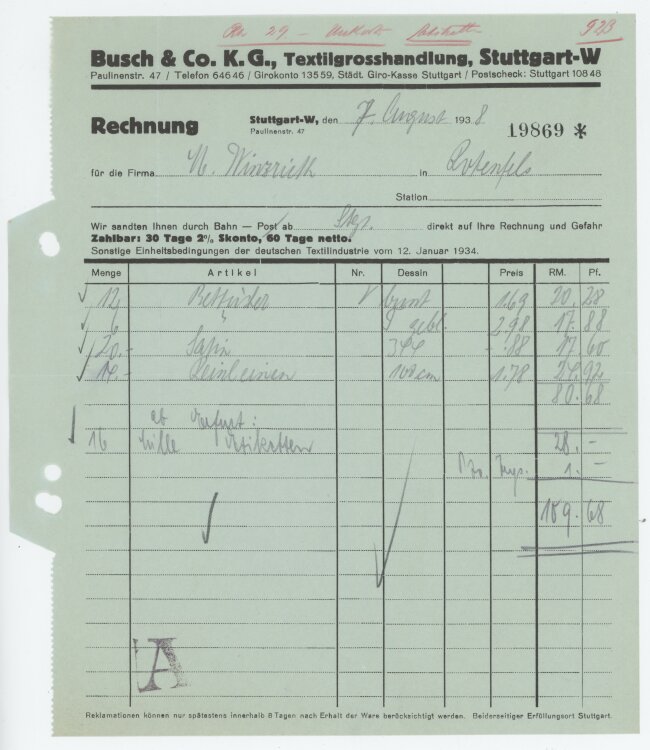 923
Busch & Co. K.G., Textilgrosshandlung, Stuttgart-W
Paulinenstr. 47 / Telefon 64646 / Girokonto 13559, Städt. Giro-Kasse Stuttgart / Postscheck: Stuttgart 10848
Rechnung
Stuttgart-W, den 7. August 1938
Paulinenstr. 47
19869 *
für die Firma M. Winzrieth in Rotenfels
Station
Wir sandten Ihnen durch Bahn — Post ab Stgt. direkt auf Ihre Rechnung und Gefahr
Zahlbar: 30 Tage 2% Skonto, 60 Tage netto.
Sonstige Einheitsbedingungen der deutschen Textilindustrie vom 12. Januar 1934.
Menge Artikel Nr. Dessin Preis RM. Pf.
12 Bettücher bunt 1.69 20. 28
6 " gebl. 2.98 17. 88
20.- Satin 344 -.88 17. 60
14.- Reinleinen 100 cm 1.78 24. 92
80. 68
ab
16 28. -
1. -
109. 68
A
Reklamationen können nur spätestens innerhalb 8 Tagen nach Erhalt der Ware berücksichtigt werden. Beiderseitiger Erfüllungsort Stuttgart.